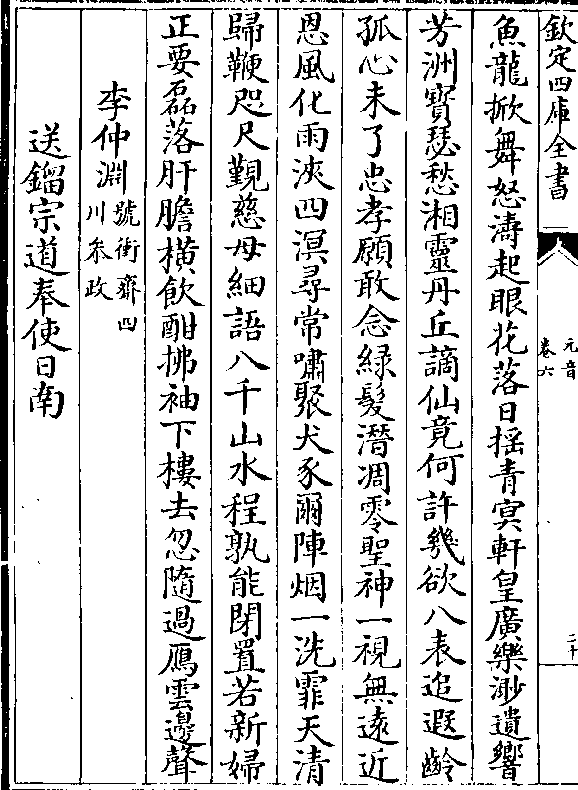 欽定四庫全書
元音
卷六
二十
魚龍掀舞怒濤起眼花落日揺青冥軒皇廣樂渺遺響
芳洲寶瑟愁湘靈丹丘謫仙竟何許幾欲八表追遐齡
孤心未了忠孝願敢念綠髪潛凋零聖神一視無逺近
恩風化雨浹四溟尋常嘯聚犬豕爾陣烟一洗霏天清
歸鞭咫尺覲慈母細語八千山水程孰能閉置若新婦
正要磊落肝膽横飲酣拂袖下樓去忽隨過鴈雲邊聲
李仲淵號衝齋四川叅政
送鎦宗道奉使日南